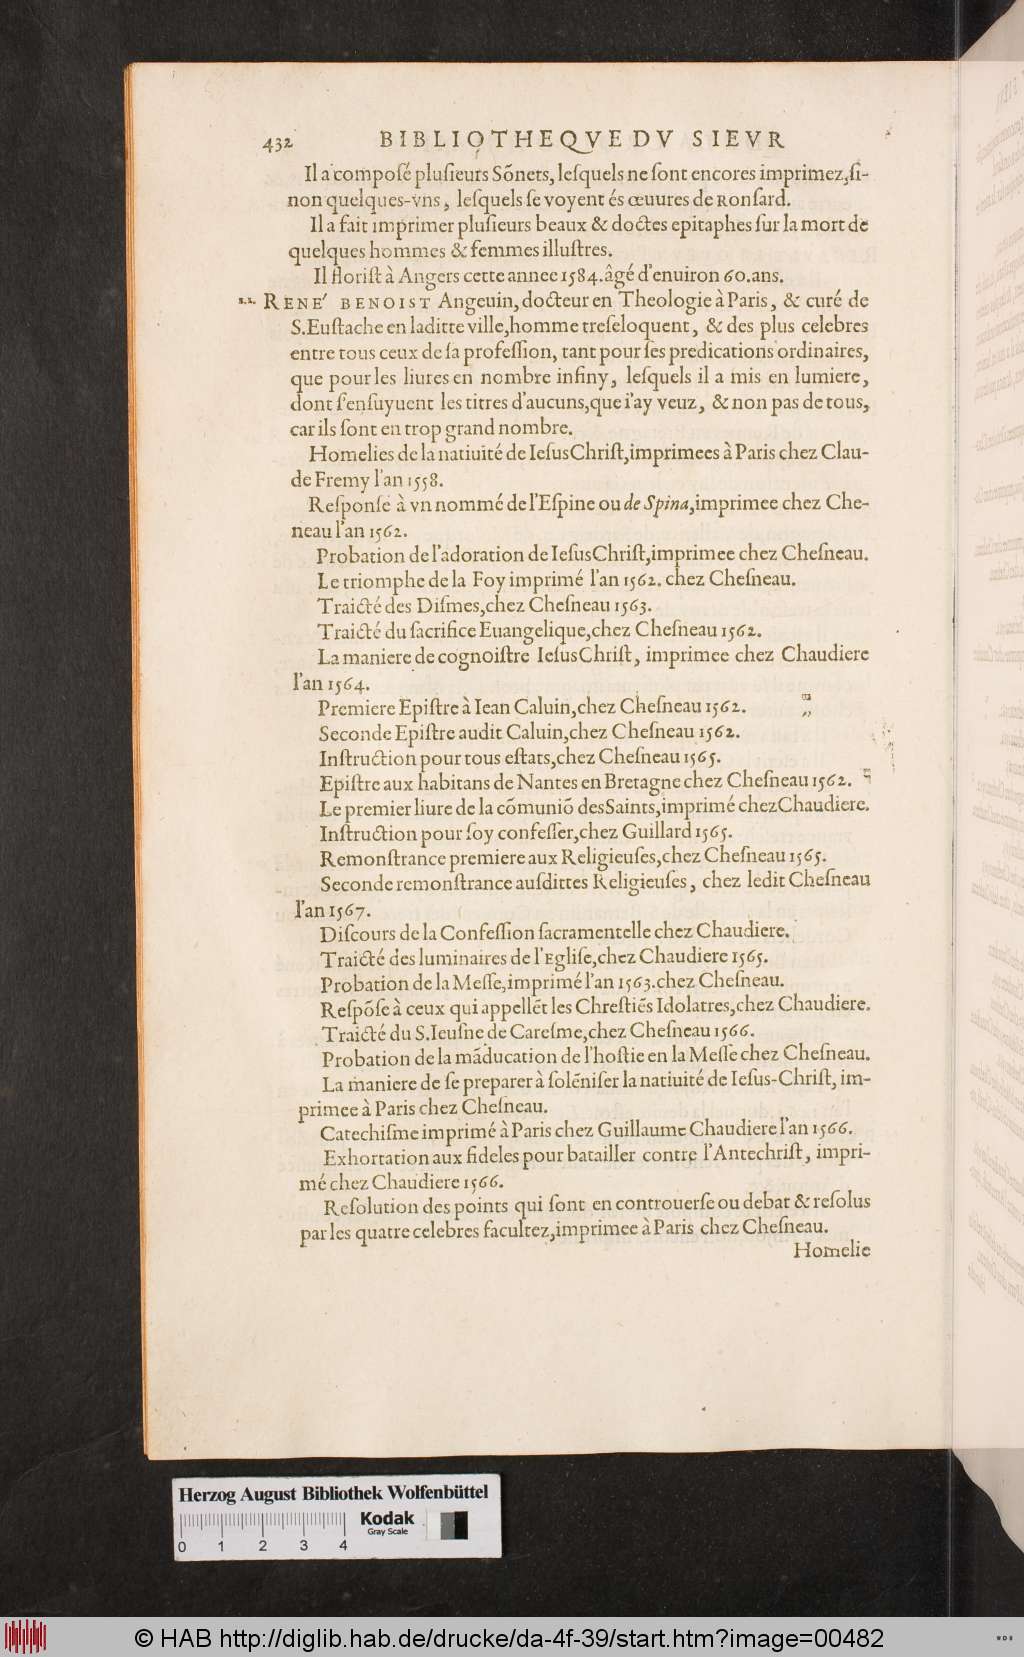 432 BIBLIOTHEQVE DV SIEVR
Il a composé plusieurs Sõnets, lesquels ne sont encores imprimez, si-
non quelques-vns, lesquels se voyent és œuures de Ronsard.
Il a fait imprimer plusieurs beaux & doctes epitaphes sur la mort de
quelques hommes & femmes illustres.
Il florist à Angers cette annee 1584. âgé d'enuiron 60. ans.
RENE' BENOIST Angeuin, docteur en Theologie à Paris, & curé de
S. Eustache en laditte ville, homme treseloquent, & des plus celebres
entre tous ceux de sa profession, tant pour ses predications ordinaires,
que pour les liures en nombre infiny, lesquels il a mis en lumiere,
dont s'ensuyuent les titres d'aucuns, que i'ay veuz, & non pas de tous,
car ils sont en trop grand nombre.
Homelies de la natiuité de Iesus Christ, imprimees à Paris chez Clau-
de Fremy l'an 1558.
Response à vn nommé de l'Espine ou de Spina, imprimee chez Che-
neau l'an 1562.
Probation de l'adoration de Iesus Christ, imprimee chez Chesneau.
Le triomphe de la Foy imprimé l'an 1562. chez Chesneau.
Traicté des Dismes, chez Chesneau 1563.
Traicté du sacrifice Euangelique, chez Chesneau 1562.
La maniere de cognoistre Iesus Christ, imprimee chez Chaudiere
l'an 1564.
Premiere Epistre à Iean Caluin, chez Chesneau 1562.
Seconde Epistre audit Caluin, chez Chesneau 1562.
Instruction pour tous estats, chez Chesneau 1565.
Epistre aux habitans de Nantes en Bretagne chez Chesneau 1562.
Le premier liure de la cõmuniõ des Saints, imprimé chez Chaudiere.
Instruction pour soy confesser, chez Guillard 1565.
Remonstrance premiere aux Religieuses, chez Chesneau 1565.
Seconde remonstrance ausdittes Religieuses, chez ledit Chesneau
l'an 1567.
Discours de la Confession sacramentelle chez Chaudiere.
Traicté des luminaires de l'Eglise, chez Chaudiere 1565.
Probation de la Messe, imprimé l'an 1563. chez Chesneau.
Respõse à ceux qui appellẽt les Chrestiẽs Idolatres, chez Chaudiere.
Traicté du S. Ieusne de Caresme, chez Chesneau 1566.
Probation de la mãducation de l'hostie en la Messe chez Chesneau.
La maniere de se preparer à solẽniser la natiuité de Iesus-Christ, im-
primee à Paris chez Chesneau.
Catechisme imprimé à Paris chez Guillaume Chaudiere l'an 1566.
Exhortation aux fideles pour batailler contre l'Antechrist, impri-
mé chez Chaudiere 1566.
Resolution des points qui sont en controuerse ou debat & resolus
par les quatre celebres facultez, imprimee à Paris chez Chesneau.
Homelie
Herzog August Bibliothek Wolfenbüttel
Kodak
Gray Scale
0 1 2 3 4
© HAB http://diglib.hab.de/drucke/da-4f-39/start.htm?image=00482